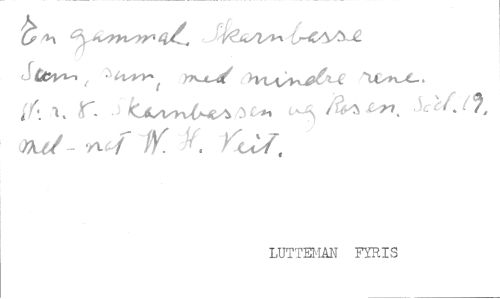 En gammal Skarnbasse
Sum, sum, med mindre rene.
N. r. 8. Skarnbassen og Rosen. Söd. 19.
mel-not W. H. Veit.
LUTTEMAN FYRIS